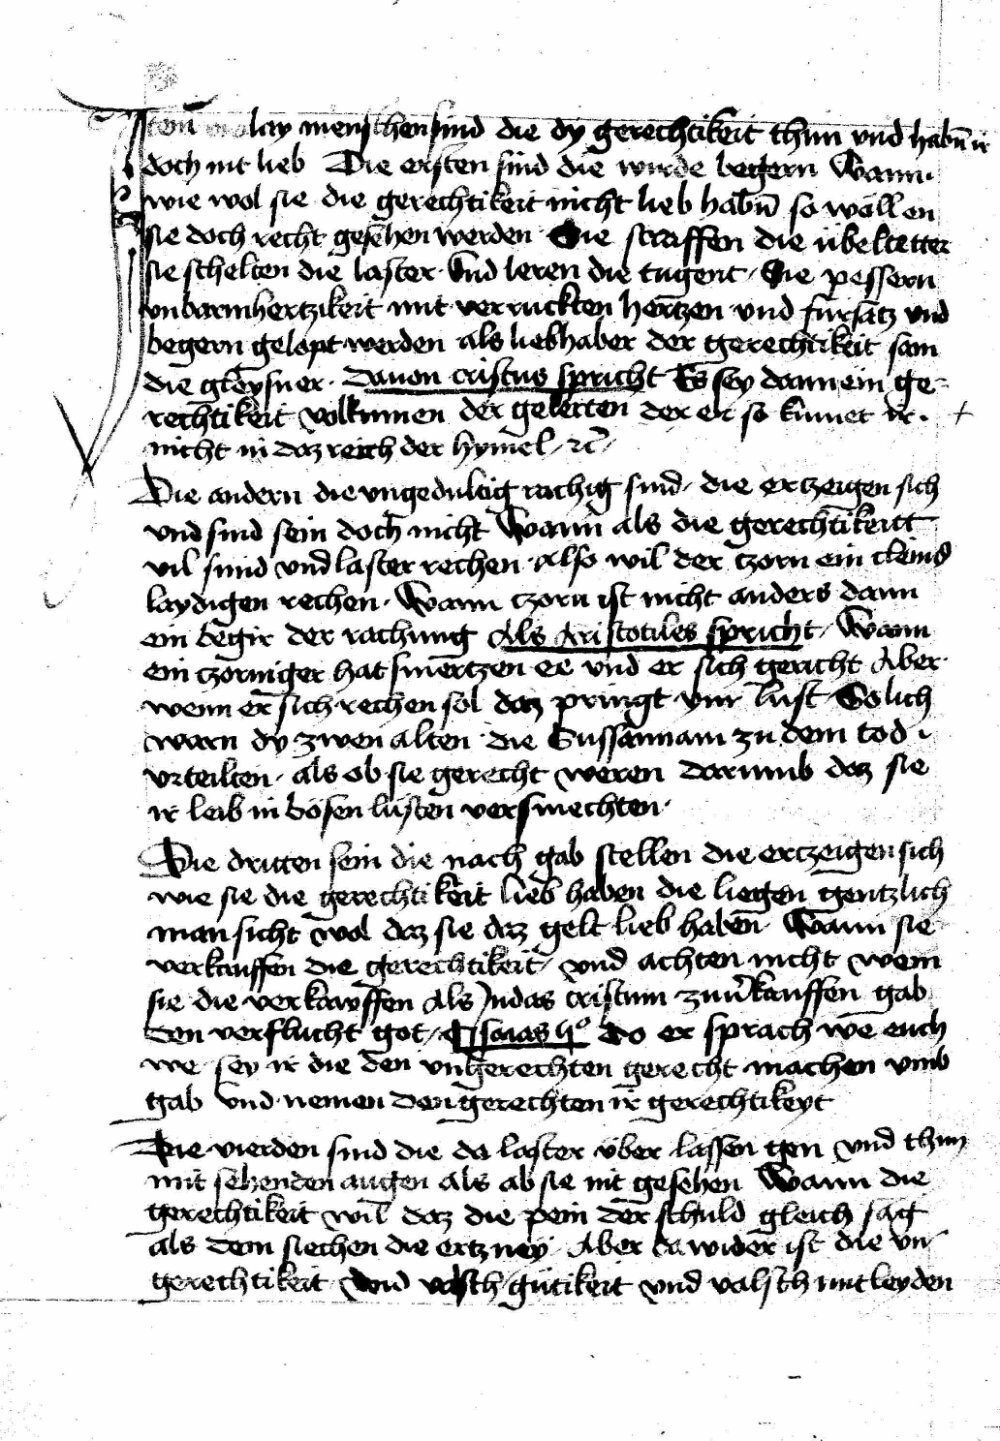 Item lay menschen sind die dy gerechtikeit thun vnd habn̄ ir
doch nit lieb Die ersten sind die wirde begern Wann
wie wol sie die gerechtikeit nicht lieb habn̄ so wöllen
sie doch recht gesehen werden Sie straffen die übeltetter
sie schelten die laster vnd leren die tugent Sie pessern
vnbarmhertzikeit mit verruckten hertzen vnd fürsatz vnd
begern gelopt werden als liebhaber der gerechtikeit sam
die gleysner. Dauon cristus spricht Es sey dann ein ge=
rechtikeit volkumen der gelerten der er so kumet ir.
nicht in daz reich der hymel rc̄
Die andern die vngedultig rachig sind die erczeigen sich
vnd sind sein doch nicht Wann als die gerechtikeitt
vil sünd vnd laster rechen Also wil der czorn ein cleins
laydigen rechen. Wann czorn ist nicht anders dann
ein begir der rachung Als Aristotiles spricht Wann
ein czorniger hat smertzen ee vnd er sich gericht Aber
wenn er sich rechen sol daz pringt ym lust Solich
warn dy zwen alten die Sussannam zu dem tod
vrteilten als ob sie gerecht weren Darumb daz sie
ir leib in bösen lüsten versmechten.
Die dritten sein die nach gab stellen die erczeigen sich
wie sie die gerechtikeit lieb haben die liegen gentzlich
man sicht wol daz sie daz gelt lieb haben Wann sie
verkauffen die gerechtikeit vnd achten nicht wem
sie die verkawffen Als Judas cristum zuu̓kauffen gab
den verflucht got Isaias 5º Do er sprach we euch
we sey ir die den vngerechten gerecht machen vmb
gab vnd nemen den gerechten ir gerechtikeyt
Die vierden sind die da laster über lassen gen vnd thun
mit sehenden augen als ab sie nit gesehen Wann die
gerechtikeit wil daz die pein der schuld gleich sag
als dem siechen die ertzney Aber da wider ist die vn
gerechtikeit vnd valsch gütikeit vnd valsch mitleyden